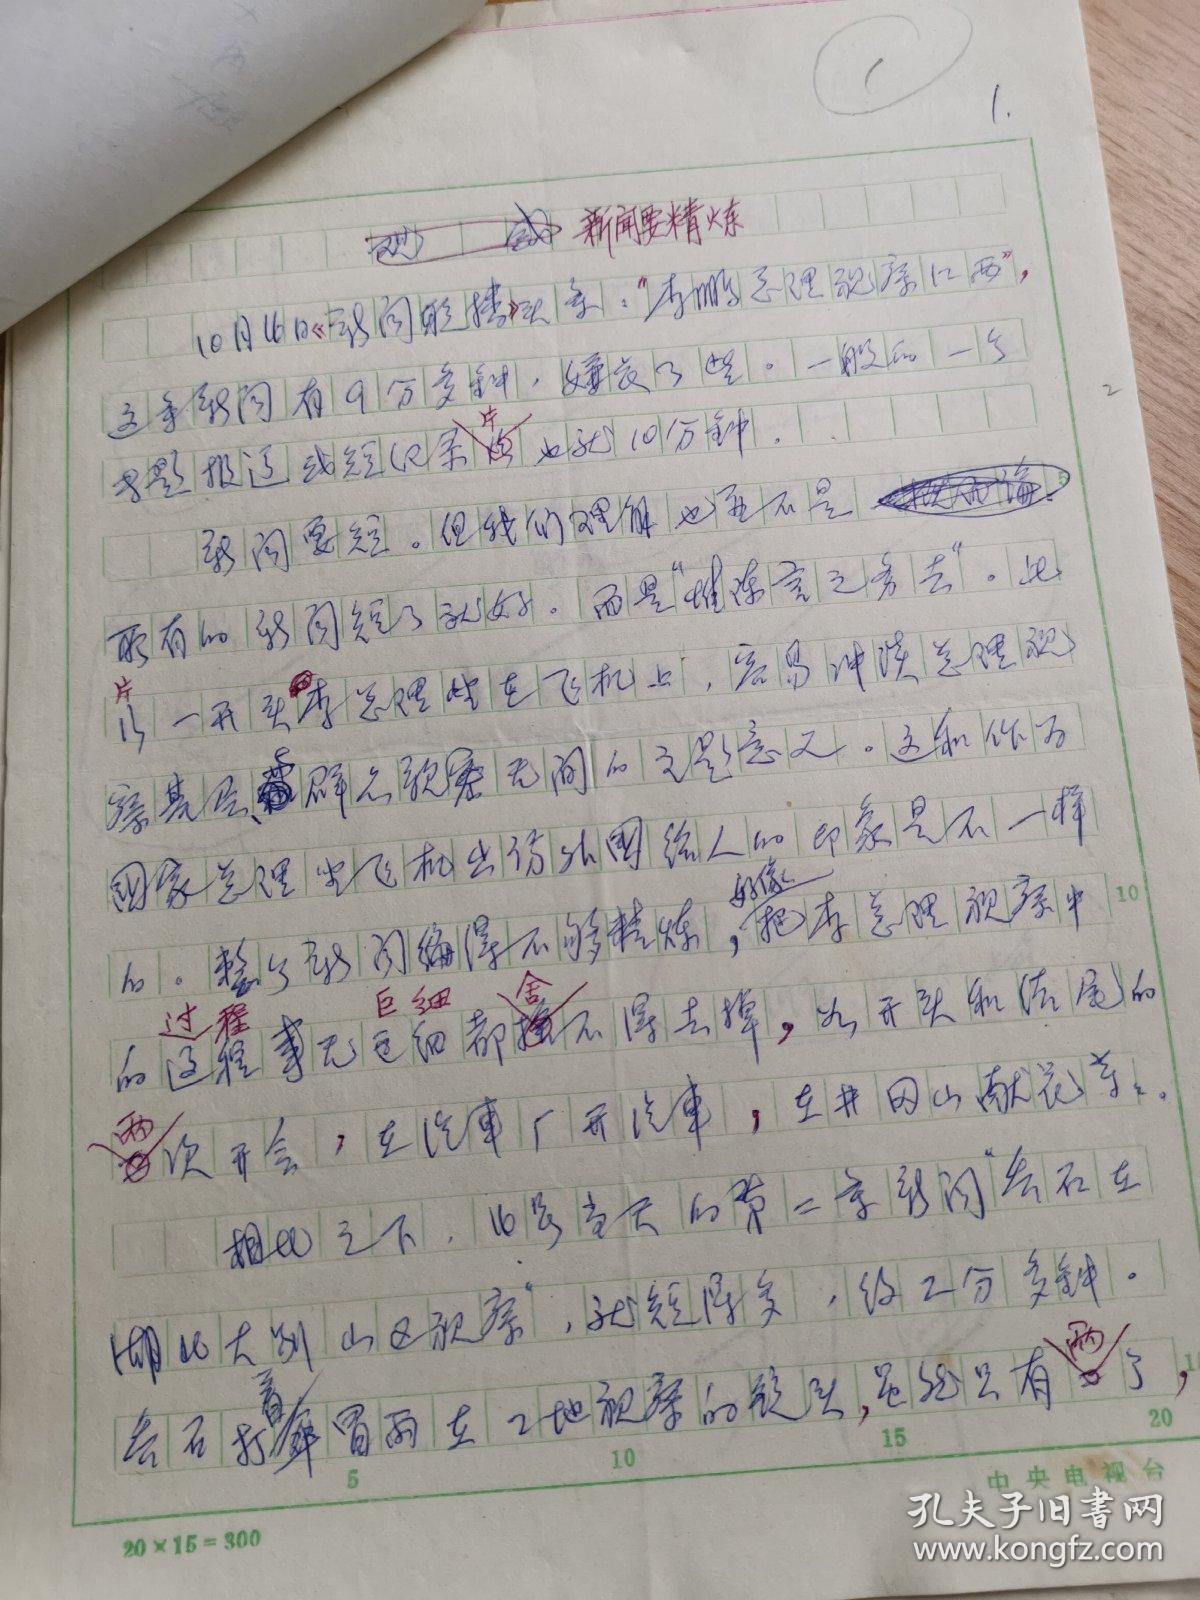 1
1.
观 感 新闻要精炼
10月16日《新闻联播》头条："李鹏总理视察江西"，
这条新闻有9分多钟，嫌长了些。一般的一个
专题报道或短纪录片也就10分钟。
2
新闻要短。但我们理解也并不是
所有的新闻短了就好。而是"惟陈言之务去"。此
片一开头李总理坐在飞机上，容易冲淡总理视
察基层、群众亲密无间的主题意义。这和作为
国家总理坐飞机出访外国给人的印象是不一样
的。整个新闻编得不够精炼，好像把李总理视察中
过程 巨细 舍
的过程事无巨细都不得去掉，如开头和结尾的
两次开会，在汽车厂开汽车，在井冈山献花等等。
相比之下，16号当天的第二条新闻"乔石在
湖北大别山区视察"，就短得多，约2分多钟。
乔石打着伞冒雨在工地视察的镜头，虽然只有两个，
5 10 15 20
10
中央电视台
20×15=300
孔夫子旧书网
www.kongfz.com